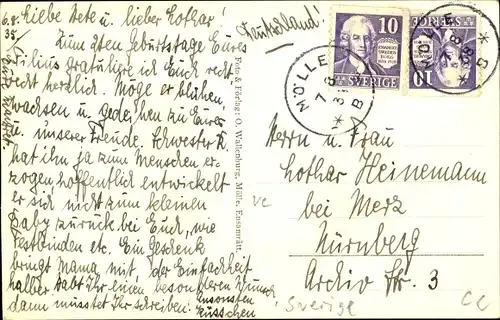 6.8.
38.
Liebe Nete u. lieber Lothar!
Zum 2ten Geburtstage Eures
Filius gratuliere ich Euch recht
recht herzlich. Möge er blühen,
wachsen u. gedeihen zu Eurer
u. unserer Freude. Schwester K.
hat ihn ja zum Menschen er-
zogen, hoffentlich entwickelt
er sich nicht zum kleinen
Baby zurück bei Euch, wie
Festbinden etc. Ein Geschenk
bringt Mama mit, der Einfachheit
halber. Habt Ihr einen besonderen Wunsch
dann müsstet Ihr schreiben! Ansonsten
Küsschen
Foto & Förlag: O. Wallenburg, Mölle. Ensamrätt.
Deutschland!
10
SVERIGE
10
SVERIGE
MÖLLE
7.8
38
B
Herrn u. Frau
Lothar Heinemann
bei Merz
Nürnberg
Archiv Str. 3
Sverige